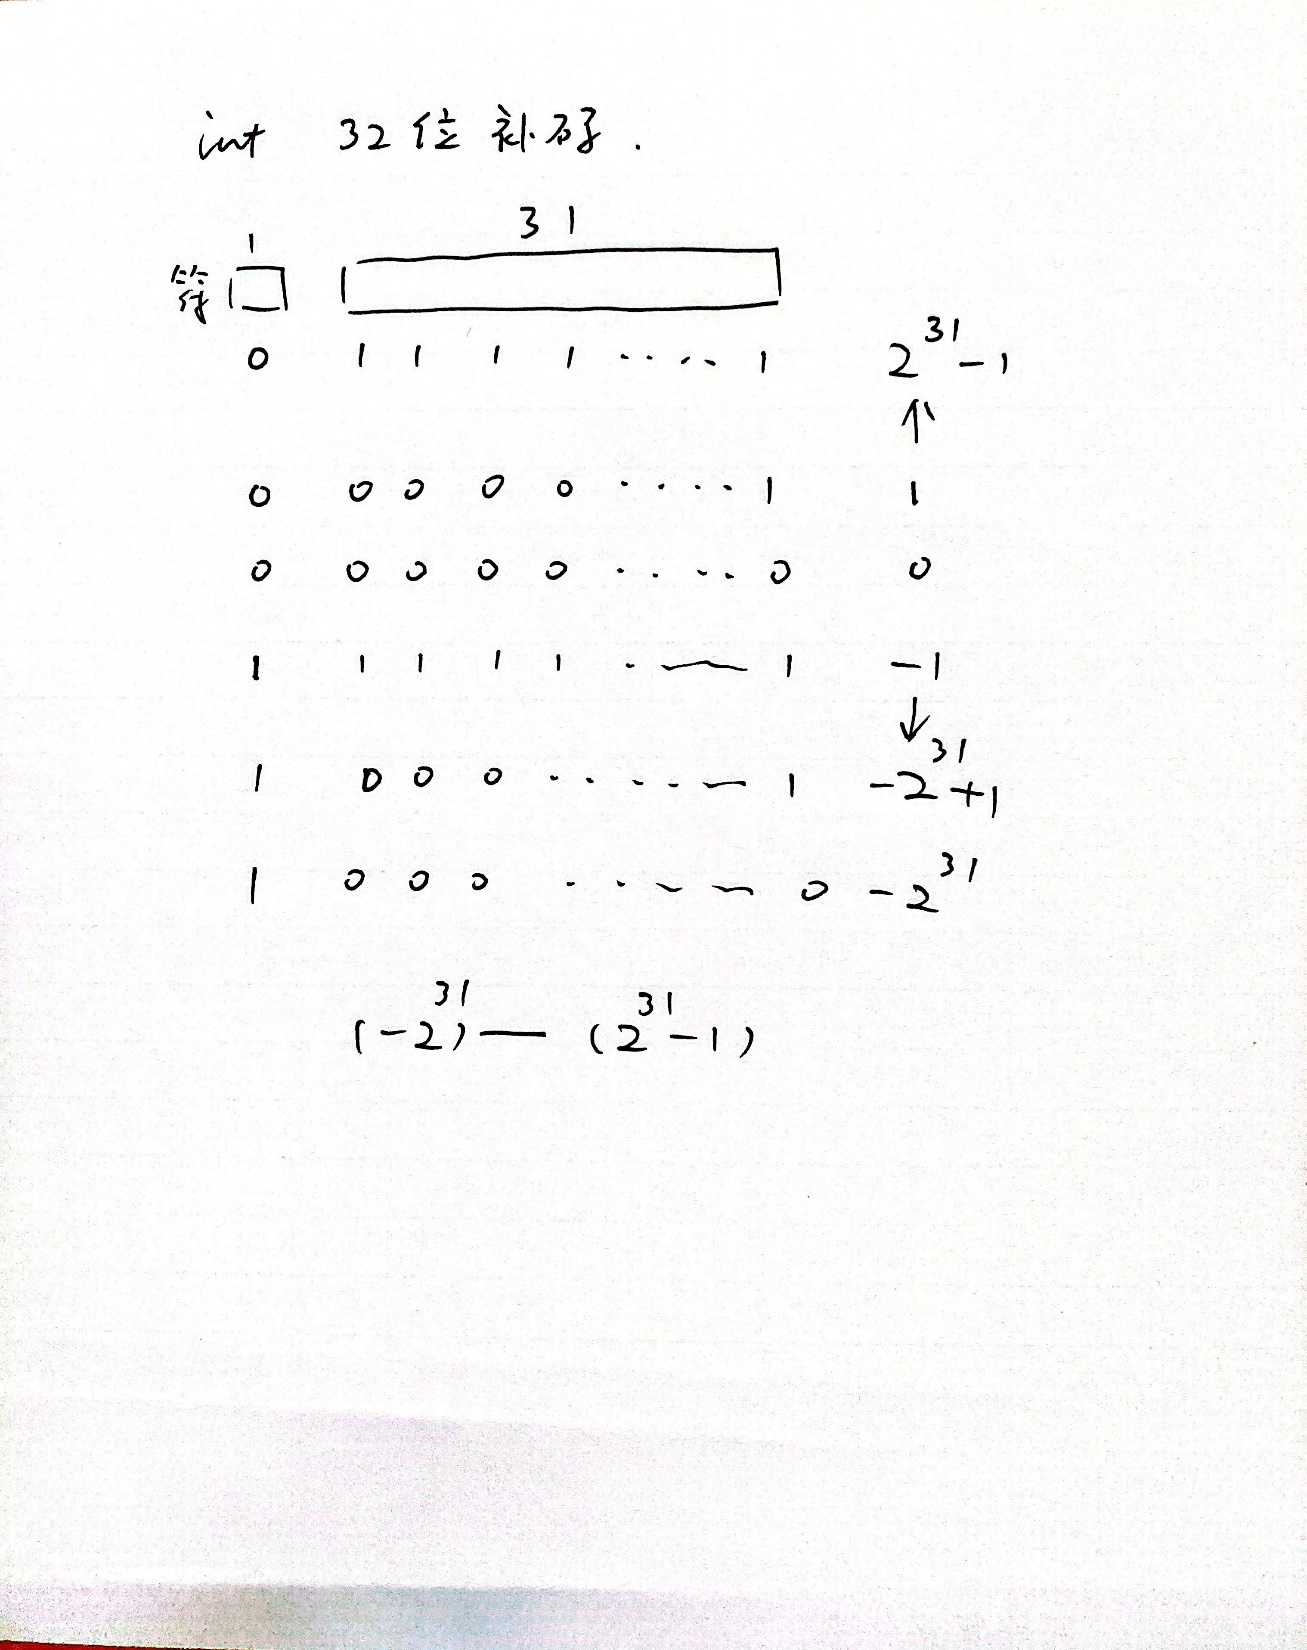 int 32位补码.
1 31
符
0 1 1 1 1 ...... 1 2^31-1
↑
0 0 0 0 0 ..... 1 1
0 0 0 0 0 ..... 0 0
1 1 1 1 1 .— 1 -1
↓
1 0 0 0 ....— 1 -2^31+1
1 0 0 0 ..—— 0 -2^31
(-2)^31 — (2^31-1)